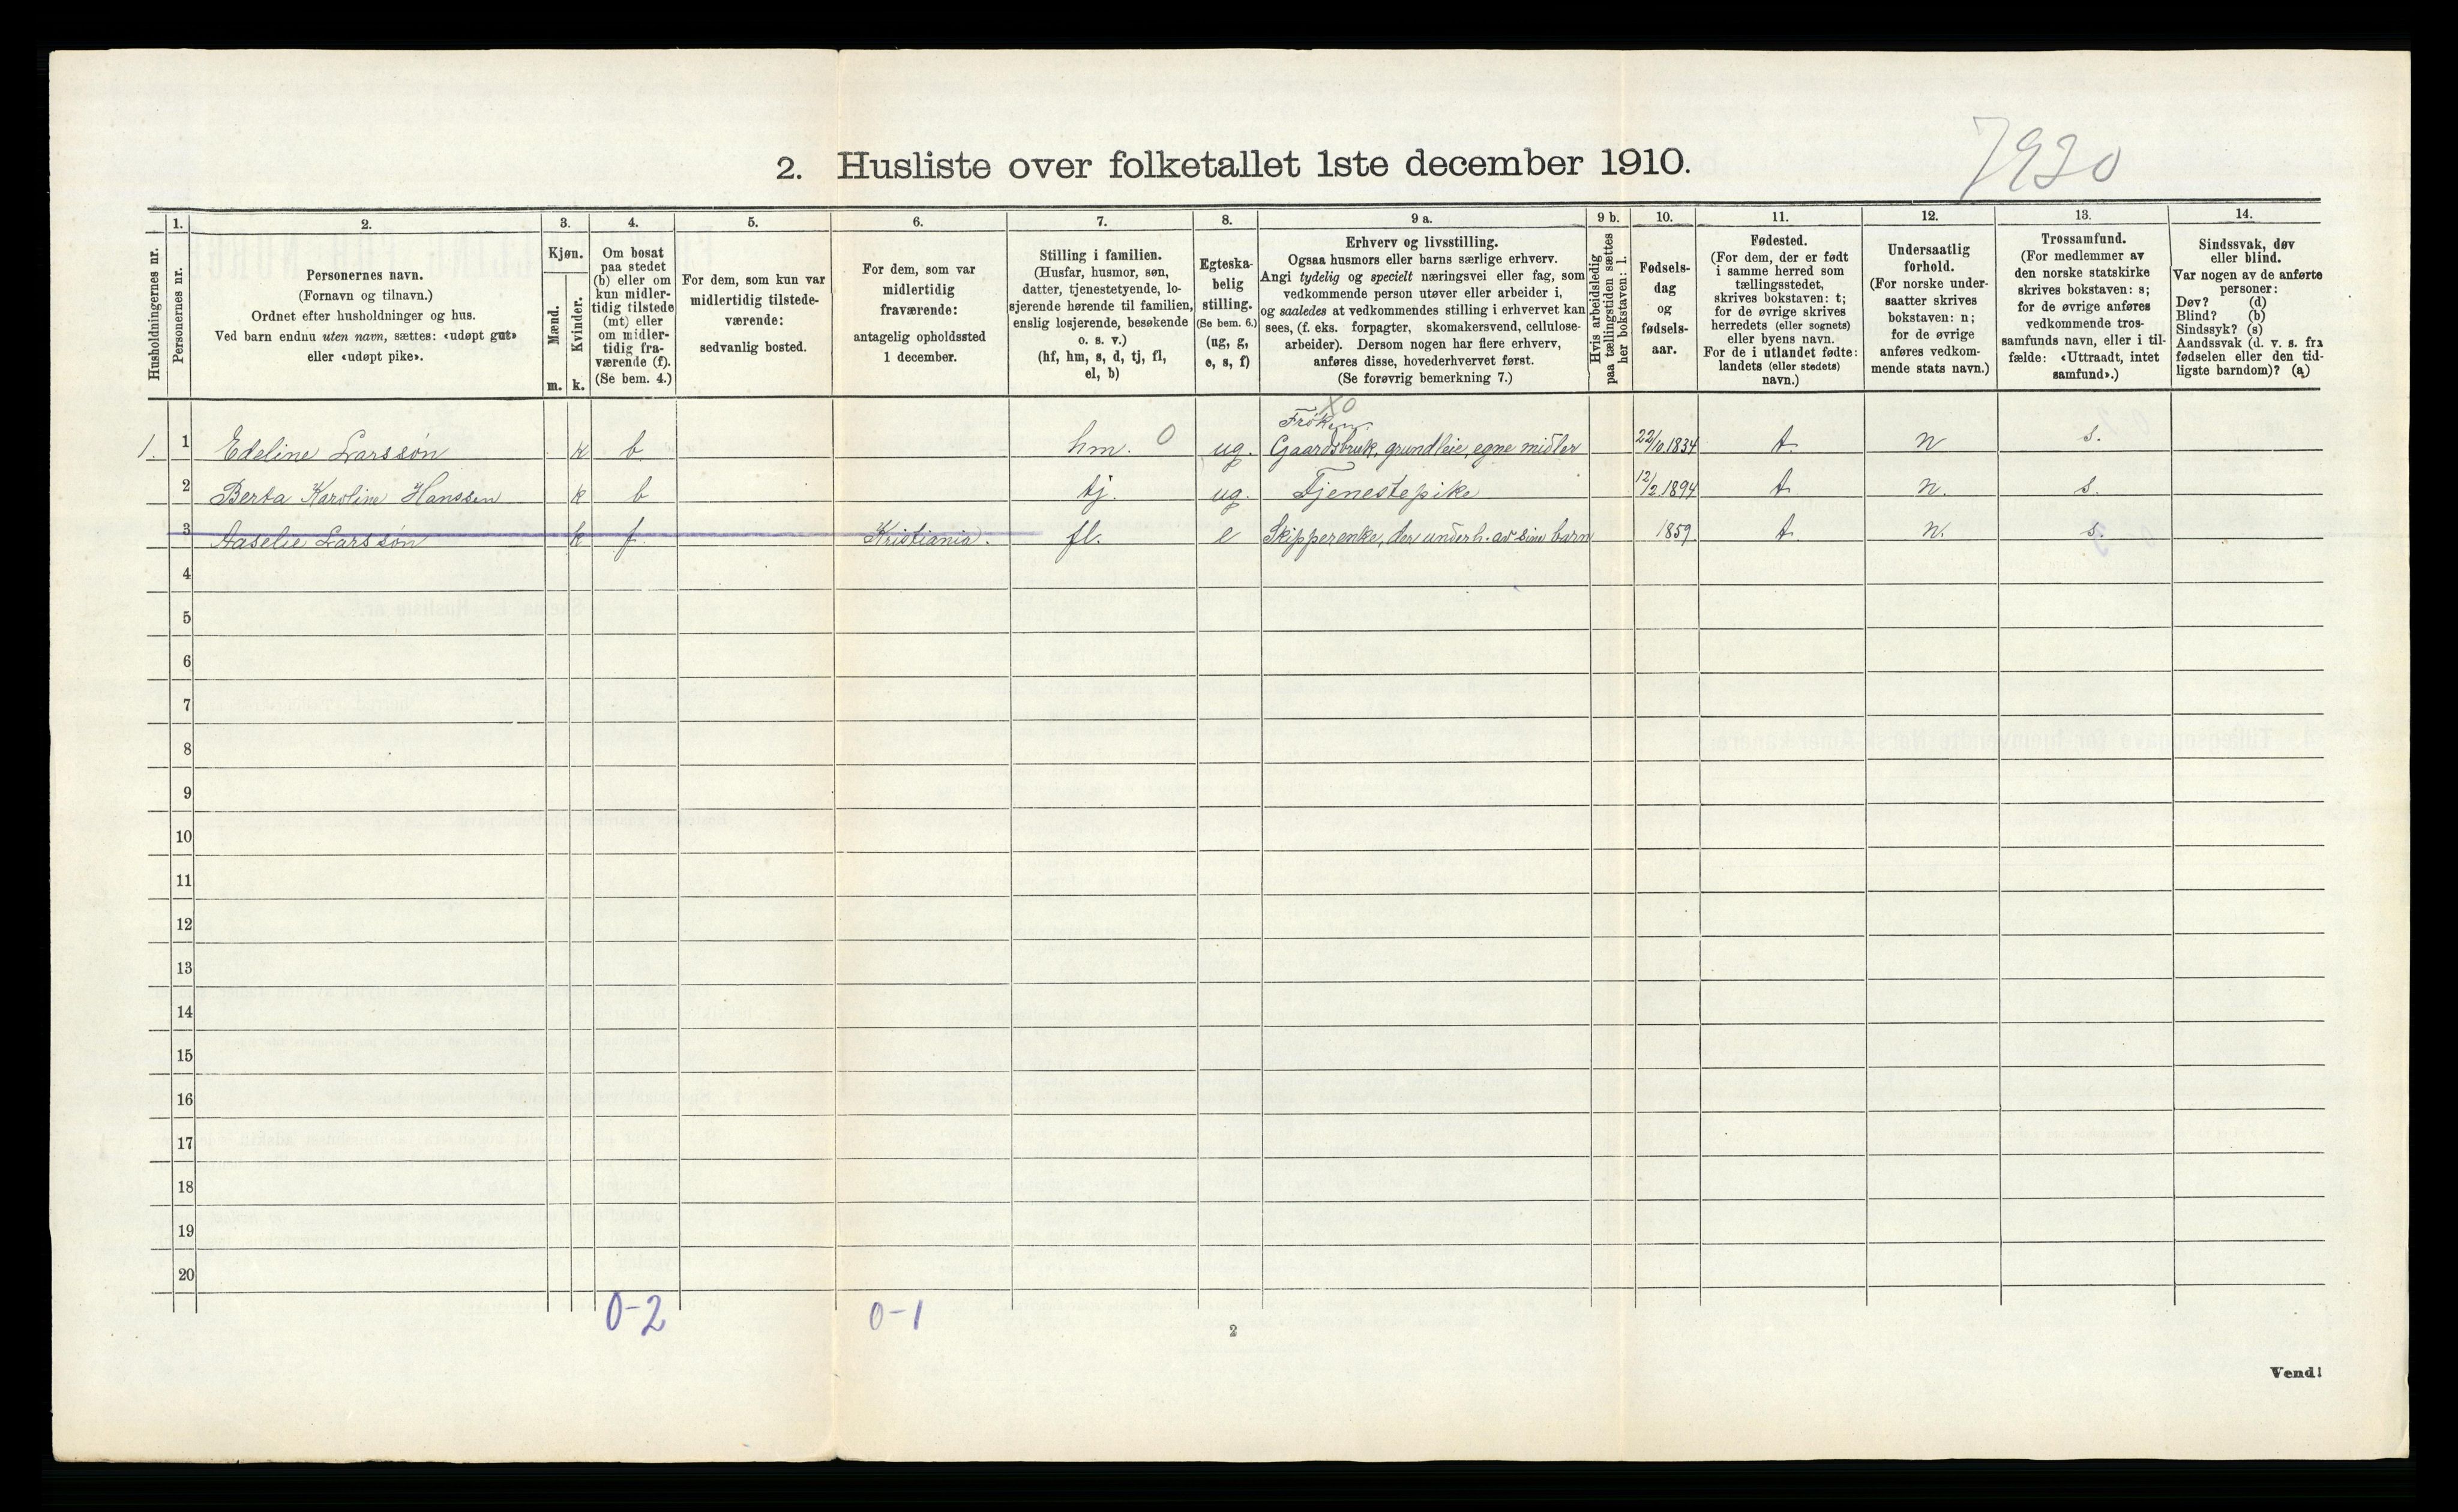 7920
2. Husliste over folketallet 1ste december 1910.
Husholdningernes nr.
1.
Personernes nr.
2.
Personernes navn.
(Fornavn og tilnavn.)
Ordnet efter husholdninger og hus.
Ved barn endnu uten navn, sættes: «udøpt gut»
eller «udøpt pike».
3.
Kjøn.
Mænd.
Kvinder.
m. k.
4.
Om bosat
paa stedet
(b) eller om
kun midler-
tidig tilstede
(mt) eller
om midler-
tidig fra-
værende (f).
(Se bem. 4.)
5.
For dem, som kun var
midlertidig tilstede-
værende:
sedvanlig bosted.
6.
For dem, som var
midlertidig
fraværende:
antagelig opholdssted
1 december.
7.
Stilling i familien.
(Husfar, husmor, søn,
datter, tjenestetyende, lo-
sjerende hørende til familien,
enslig losjerende, besøkende
o. s. v.)
(hf, hm, s, d, tj, fl,
el, b)
8.
Egteska-
belig
stilling.
(Se bem. 6.)
(ug, g,
e, s, f)
9 a.
Erhverv og livsstilling.
Ogsaa husmors eller barns særlige erhverv.
Angi tydelig og specielt næringsvei eller fag, som
vedkommende person utøver eller arbeider i,
og saaledes at vedkommendes stilling i erhvervet kan
sees, (f. eks. forpagter, skomakersvend, cellulose-
arbeider). Dersom nogen har flere erhverv,
anføres disse, hovederhvervet først.
(Se forøvrig bemerkning 7.)
9 b.
Hvis arbeidsledig
paa tællingstiden sættes
her bokstaven: l.
10.
Fødsels-
dag
og
fødsels-
aar.
11.
Fødested.
(For dem, der er født
i samme herred som
tællingsstedet,
skrives bokstaven: t;
for de øvrige skrives
herredets (eller sognets)
eller byens navn.
For de i utlandet fødte:
landets (eller stedets)
navn.)
12.
Undersaatlig
forhold.
(For norske under-
saatter skrives
bokstaven: n;
for de øvrige
anføres vedkom-
mende stats navn.)
13.
Trossamfund.
(For medlemmer av
den norske statskirke
skrives bokstaven: s;
for de øvrige anføres
vedkommende tros-
samfunds navn, eller i til-
fælde: «Uttraadt, intet
samfund».)
14.
Sindssvak, døv
eller blind.
Var nogen av de anførte
personer:
Døv? (d)
Blind? (b)
Sindssyk? (s)
Aandssvak (d. v. s. fra
fødselen eller den tid-
ligste barndom)? (a)
X0
Frøken
1. 1 Edeline Larssøn k b hm. 0 ug. Gaardsbruk, grundleie, egne midler 22/10.1834 t. n s.
2 Berta Karoline Hanssen k b tj. ug. Tjenestepike 12/2 1894 t. n. s.
3 Aaselie Larssøn k f. Kristiania. fl. e Skipperenke, der underh. av sine barn 1859 t. n. s.
4
5
6
7
8
9
10
11
12
13
14
15
16
17
18
19
20
0-2 0-1
2
Vend!